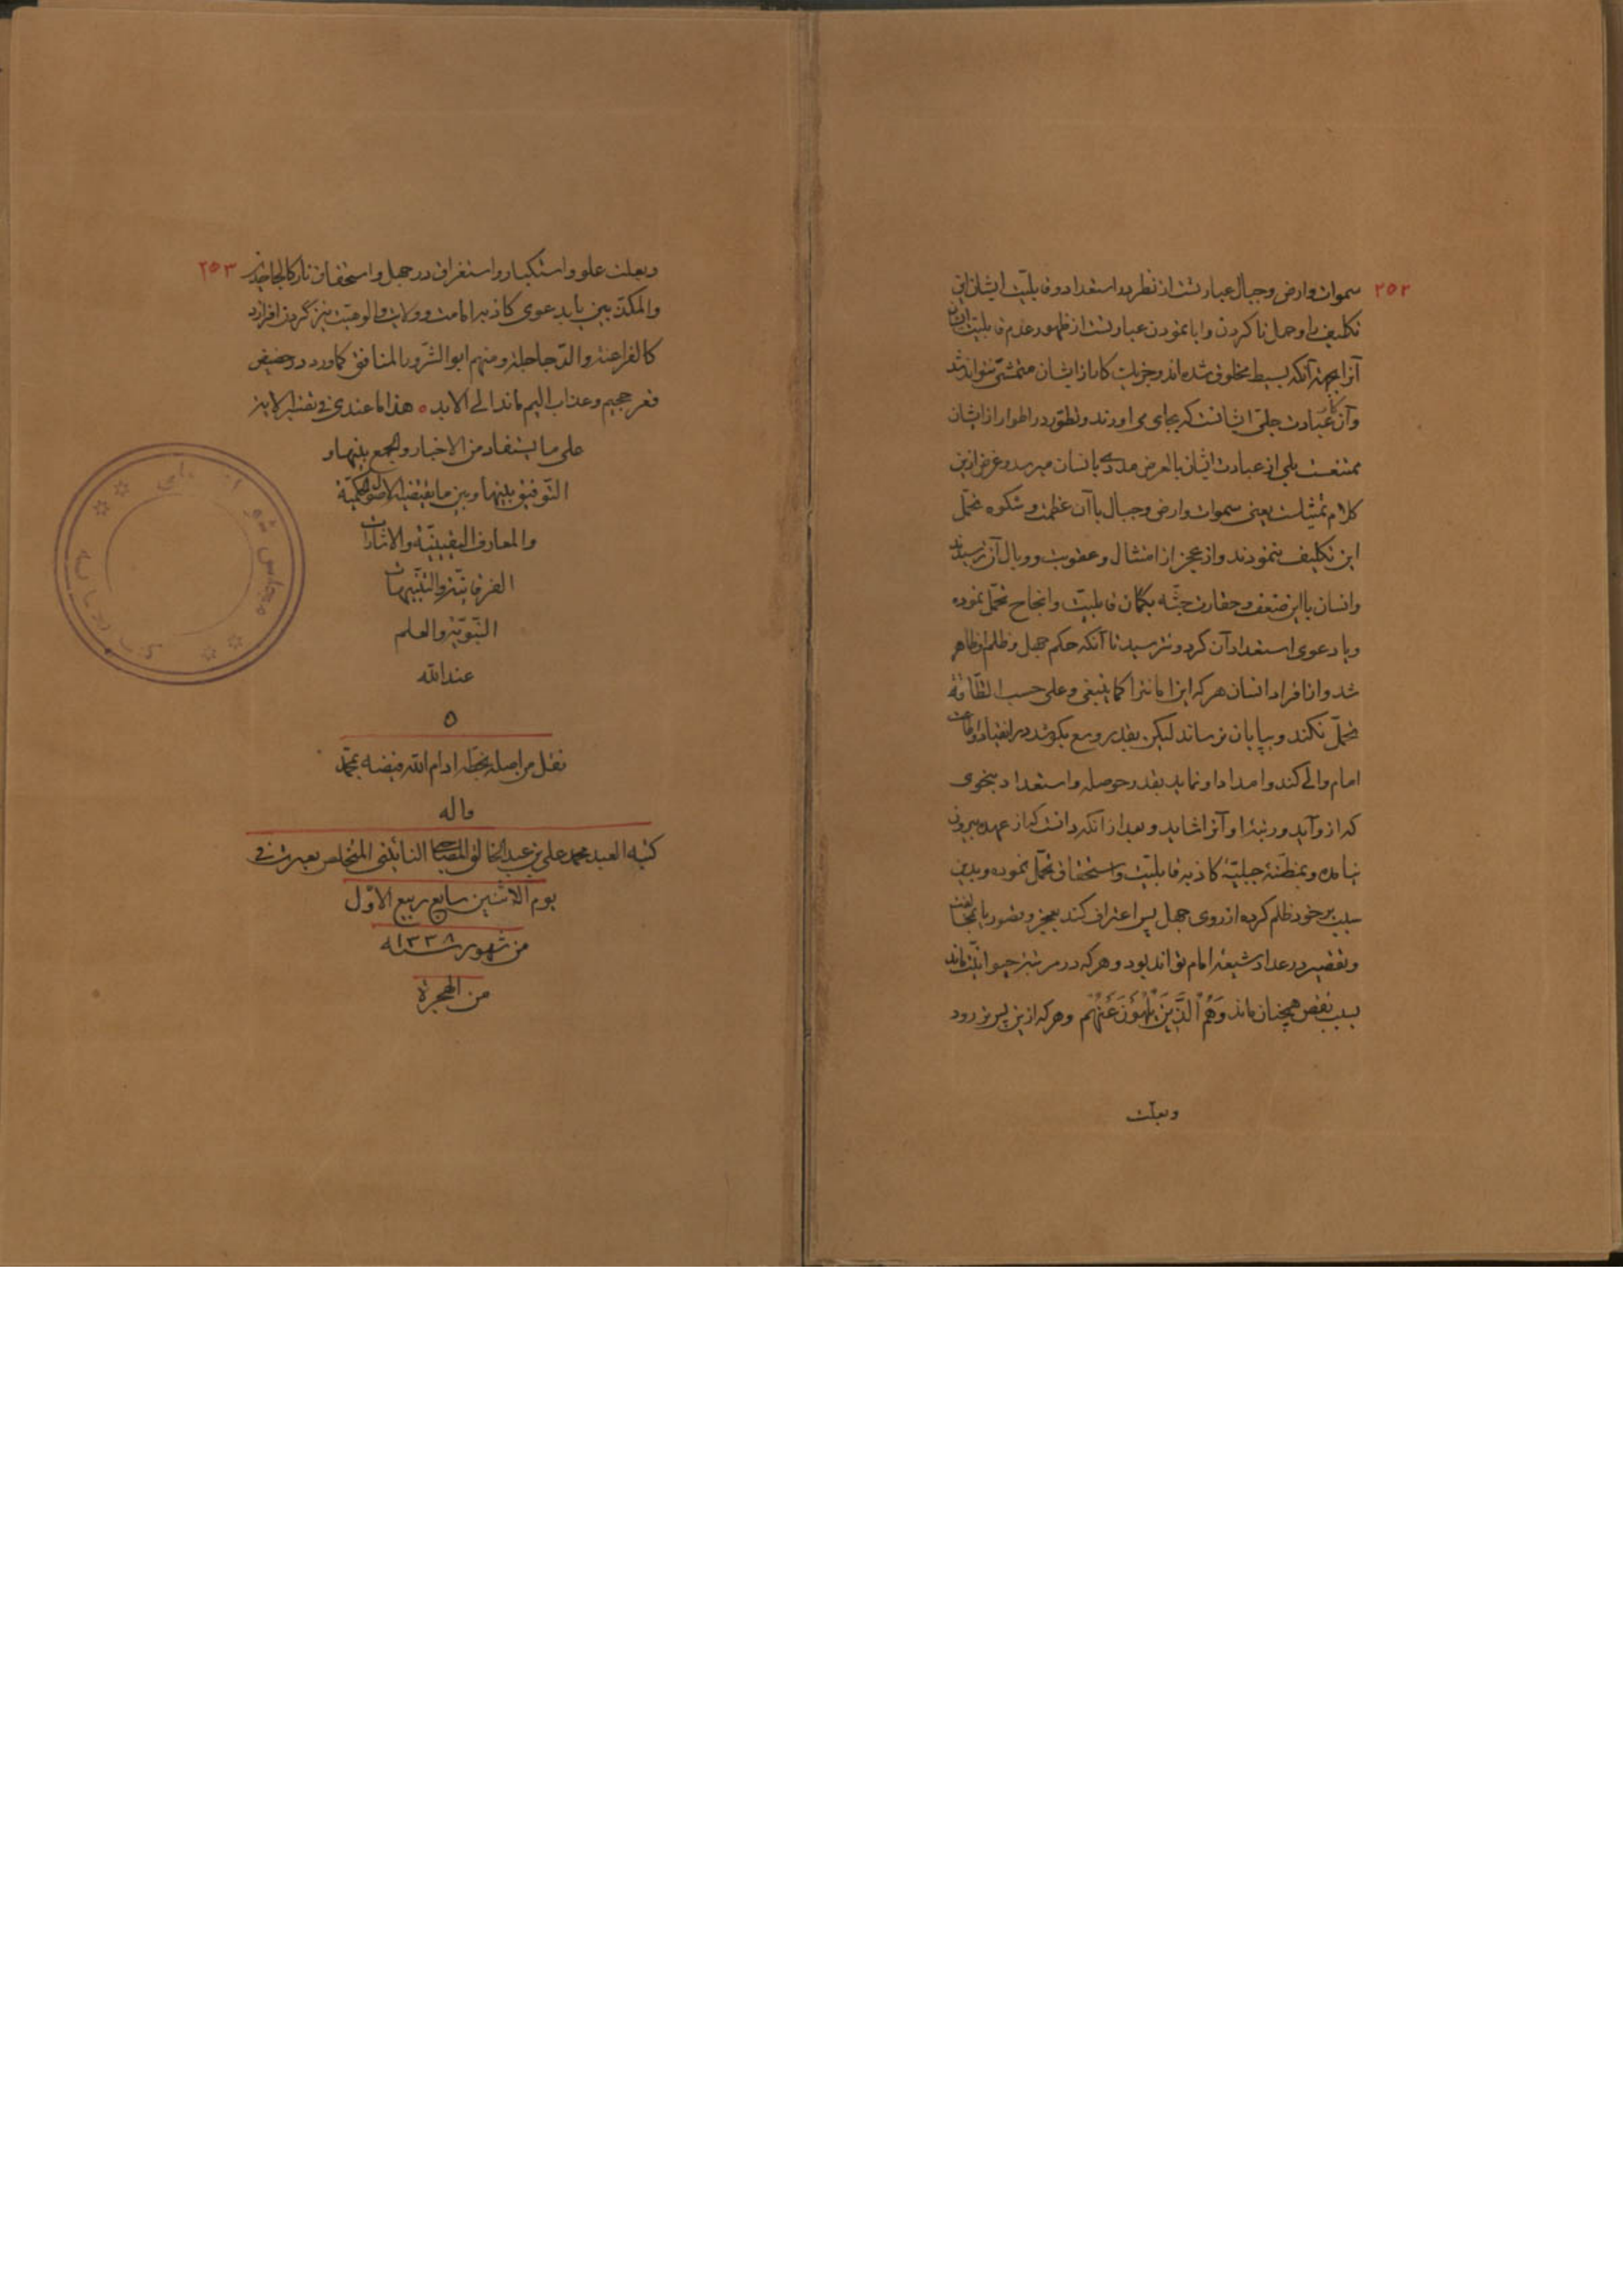 ۲۵۲
سموات وارض وجبال عبارتست از نظر بر استعداد وقابلیّت ایشان این
تکلیف را وحمل نا کردن وابا نمودن عبارتست از ظهور عدم قابلیّت ایشان
آنرا بجهة آنکه بسیط مخلوق شده‌اند وجز یک کار از ایشان متمشّی نتواند شد
وآن عبادت جبلّی ایشانست که بجای می اورند وتطوّر در اطوار از ایشان
ممتنعست بلی از عبادت ایشان بالعرض مددی بانسان میرسد وغرض ازین
کلام تمثیلست یعنی سموات وارض وجبال با آن عظمت وشکوه تحمّل
این تکلیف ننمودند واز عجز از امتثال وعقوبت ووبال آن ترسیدند
وانسان با این ضعف وحقارت جثّه بگمان قابلیّت وانجاح تحمّل نموده
وبا دعوی استعداد آن کرد ونترسید تا آنکه حکم جهل وظلم او ظاهر
شد واز افراد انسان هر که این امانترا کما ینبغی وعلی حسب الطّاقة
تحمّل نکند وبپایان نرساند لیکن بقدر وسع بکوشد در انقیاد واطاعت
امام والی کند وامداد او نماید بقدر حوصله واستعداد بنحوی
که از وآید ورتبهٔ او آنرا شاید وبعد از انکه دانست که از عهده بیرون
نیامده وبمظنّهٔ جبلیّهٔ کاذبه قابلیّت واستحقاق تحمّل نموده وبدین
سبب بر خود ظلم کرده از روی جهل پس اعتراف کند بعجز وقصور
وتقصیر در عداد شیعهٔ امام تواند بود وهر که در مرتبهٔ حیوانیّت ماند
بسبب نقص همچنان ماند وهر که ازین پس رود
وبعلّت
۲۵۳
وبعلت علو واستکبار واستغراق در جهل واستخفاف تارک کالجاحدین
والمکذّبین یا بدعوی کاذبه امامت وولایت والوهیّت نیز گردن افرازد
کالفراعنة والدّجاجلة ومنهم ابو الشّرور المنافق کما ورد در حضیض
قعر جحیم وعذاب الیم ماند الی الابد ٥ هذا ما عندی فی تفسیر الایة
علی ما یستفاد من الاخبار والجمع بینها و
التّوفیق بینها وبین ما یقتضیه الاصول الحکمیّة
والمعارف الیقینیّة والاشارات
الفرقانیّة والتنبیهات
النّبویّة والعلم
عند الله
٥
نقل من اصله بخطّه ادام الله فیضه بمحمّد
واله
کتبه العبد محمد علی بن عبد الخالق المصاحبی النائینی المتخلص بعبرت فی
یوم الاثنین سابع ربیع الاوّل
من شهور سنه ۱۳۳۸
من الهجرة
مجلس شورای ملی